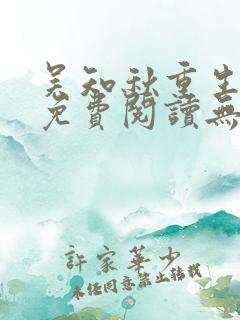 吴知秋重生
免費閱讀無
許家華少
未任同意禁止转載